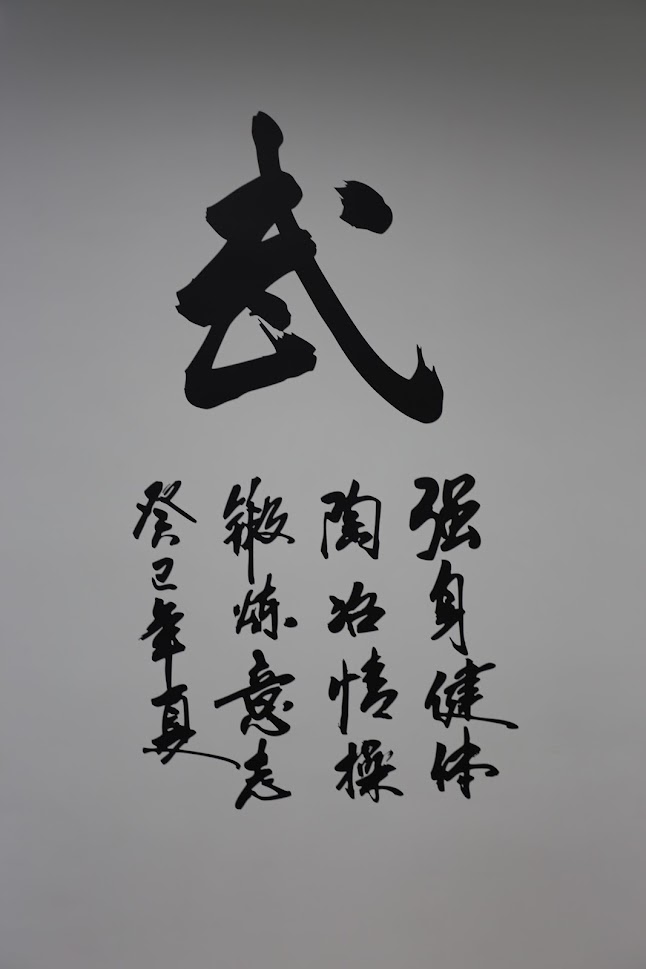 武
强身健体
陶冶情操
锻炼意志
癸巳年夏